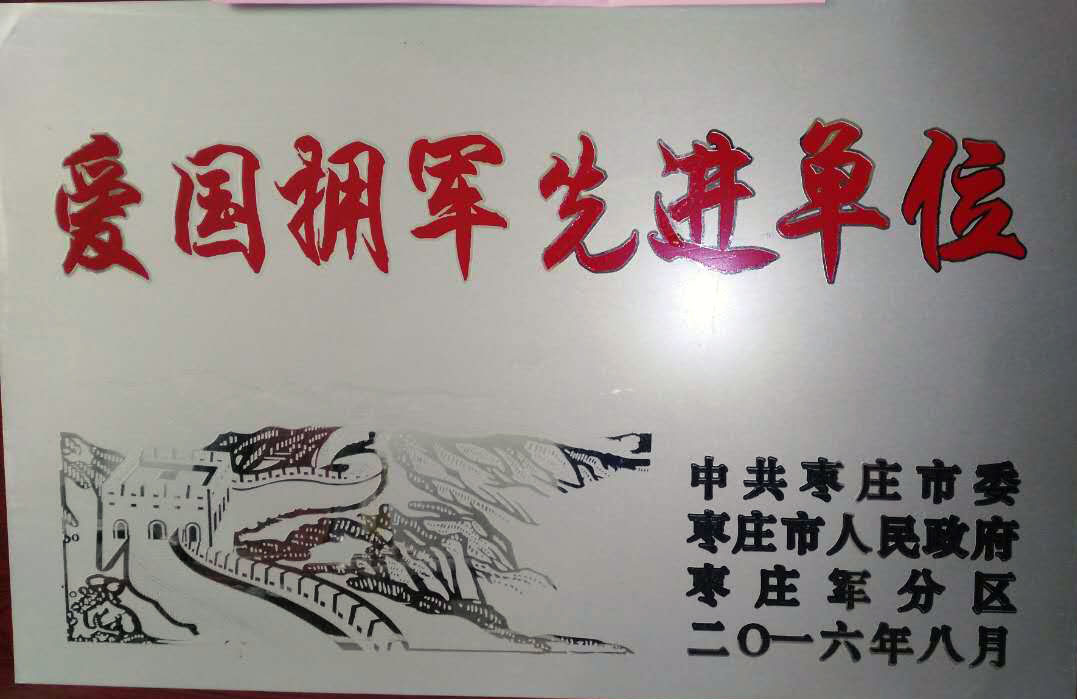 爱国拥军先进单位
中共枣庄市委
枣庄市人民政府
枣庄军分区
二〇一六年八月